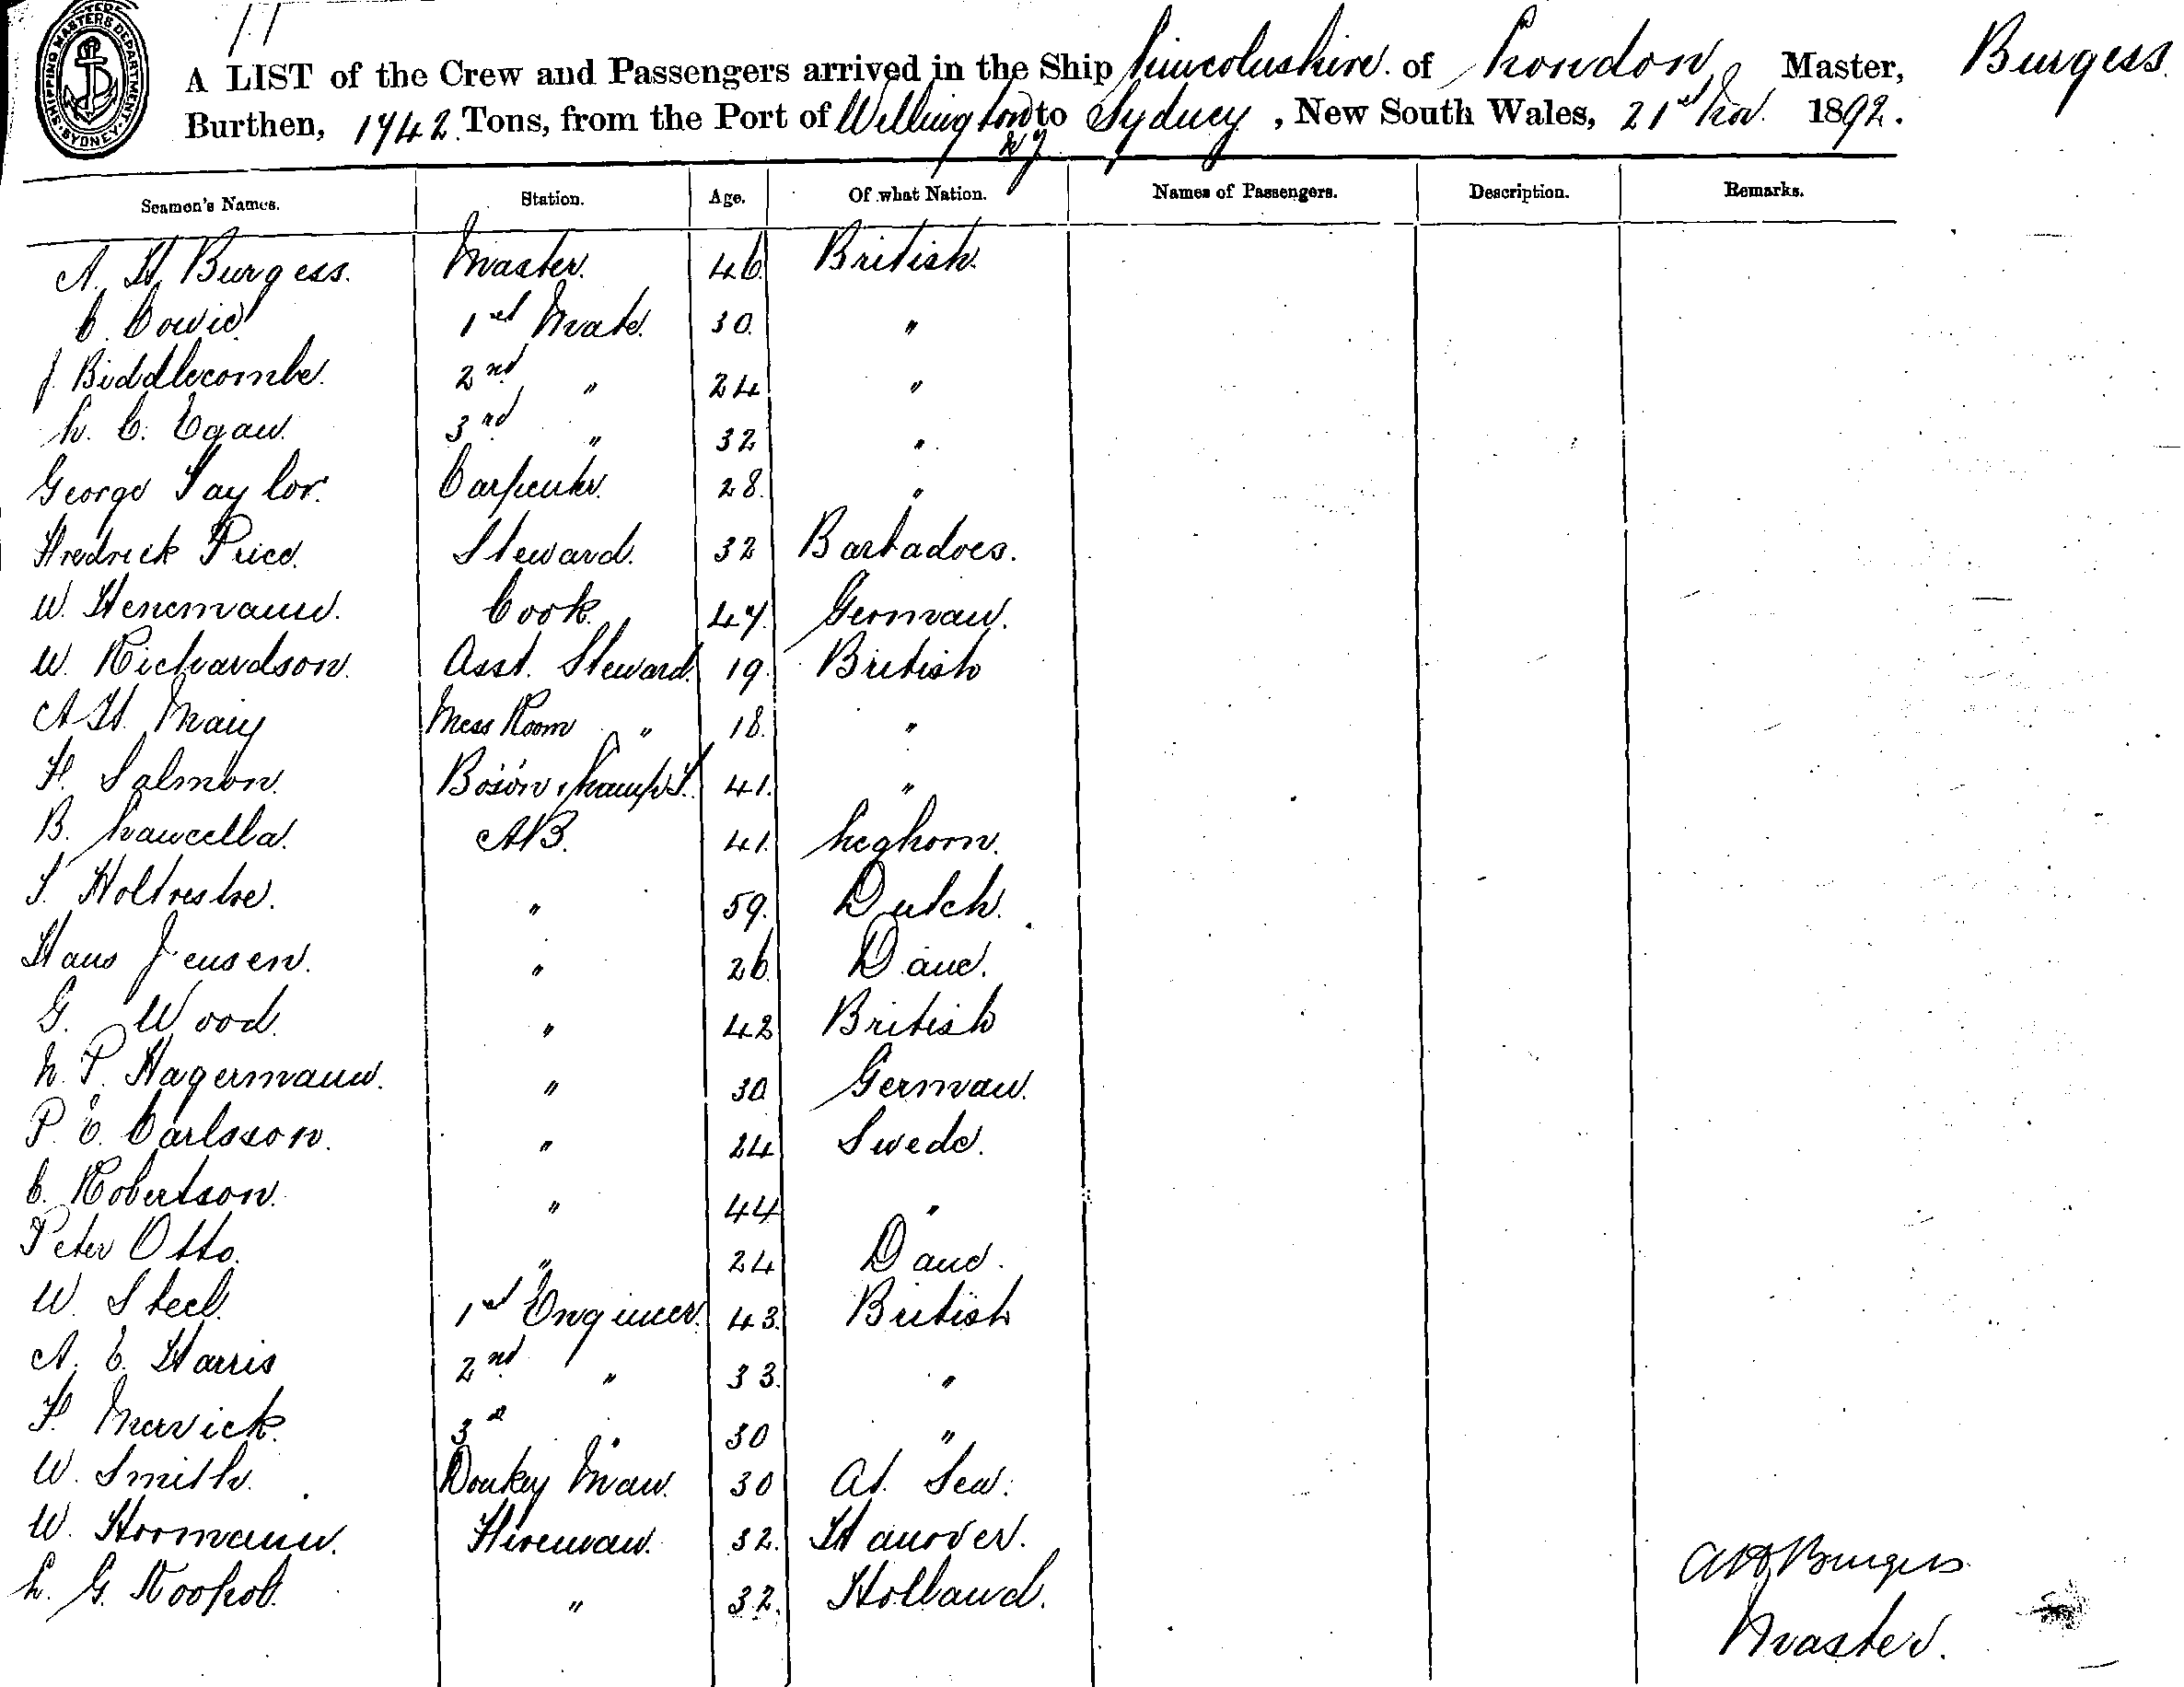 11
SHIPPING MASTERS DEPARTMENT SYDNEY
A LIST of the Crew and Passengers arrived in the Ship Lincolnshire. of London, Master, Burgess.
Burthen, 1742. Tons, from the Port of Wellington to Sydney, New South Wales, 21st Nov. 1892.
Seamen's Names. Station. Age. Of what Nation. Names of Passengers. Description. Remarks.
A. H. Burgess. Master. 46. British.
C. Cowie 1st Mate. 30. "
J. Biddlecombe. 2nd " 24 "
L. C. Egan. 3rd " 32 "
George Taylor. Carpenter. 28. "
Fredrick Price. Steward. 32 Barbadoes.
W. Henemann. Cook. 47. German.
W. Richardson. Asst. Steward. 19. British
A H. May Mess Room " 18. "
F. Salmon. Bosón & Lamp T. 41. "
B. Lancella. A.B. 41. Leghorn.
S. Holtreste. " 59. Dutch.
Hans Jensen. " 26. Dane.
G. Wood. " 42 British
H. P. Hagermann. " 30 German.
P. E. Carlsson. " 24 Swede.
C. Robertson. " 44 "
Peter Otto. " 24 Dane.
W. Steel. 1st Engineer. 43. British
A. E. Harris 2nd " 33. "
F. Mavick. 3d " 30 "
W. Smith. Donkey Man. 30 At Sea.
W. Hormann. Fireman. 32. Hanover.
L. G. Koopot. " 32. Holland.
A H Burgess
Master.